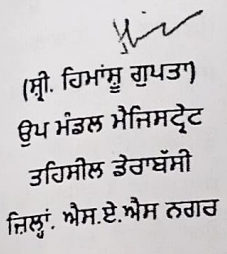 (ਸ਼੍ਰੀ. ਹਿਮਾਂਸ਼ੂ ਗੁਪਤਾ)
ਉਪ ਮੰਡਲ ਮੈਜਿਸਟ੍ਰੇਟ
ਤਹਿਸੀਲ ਡੇਰਾਬੱਸੀ
ਜ਼ਿਲ੍ਹਾਂ. ਐਸ.ਏ.ਐਸ ਨਗਰ